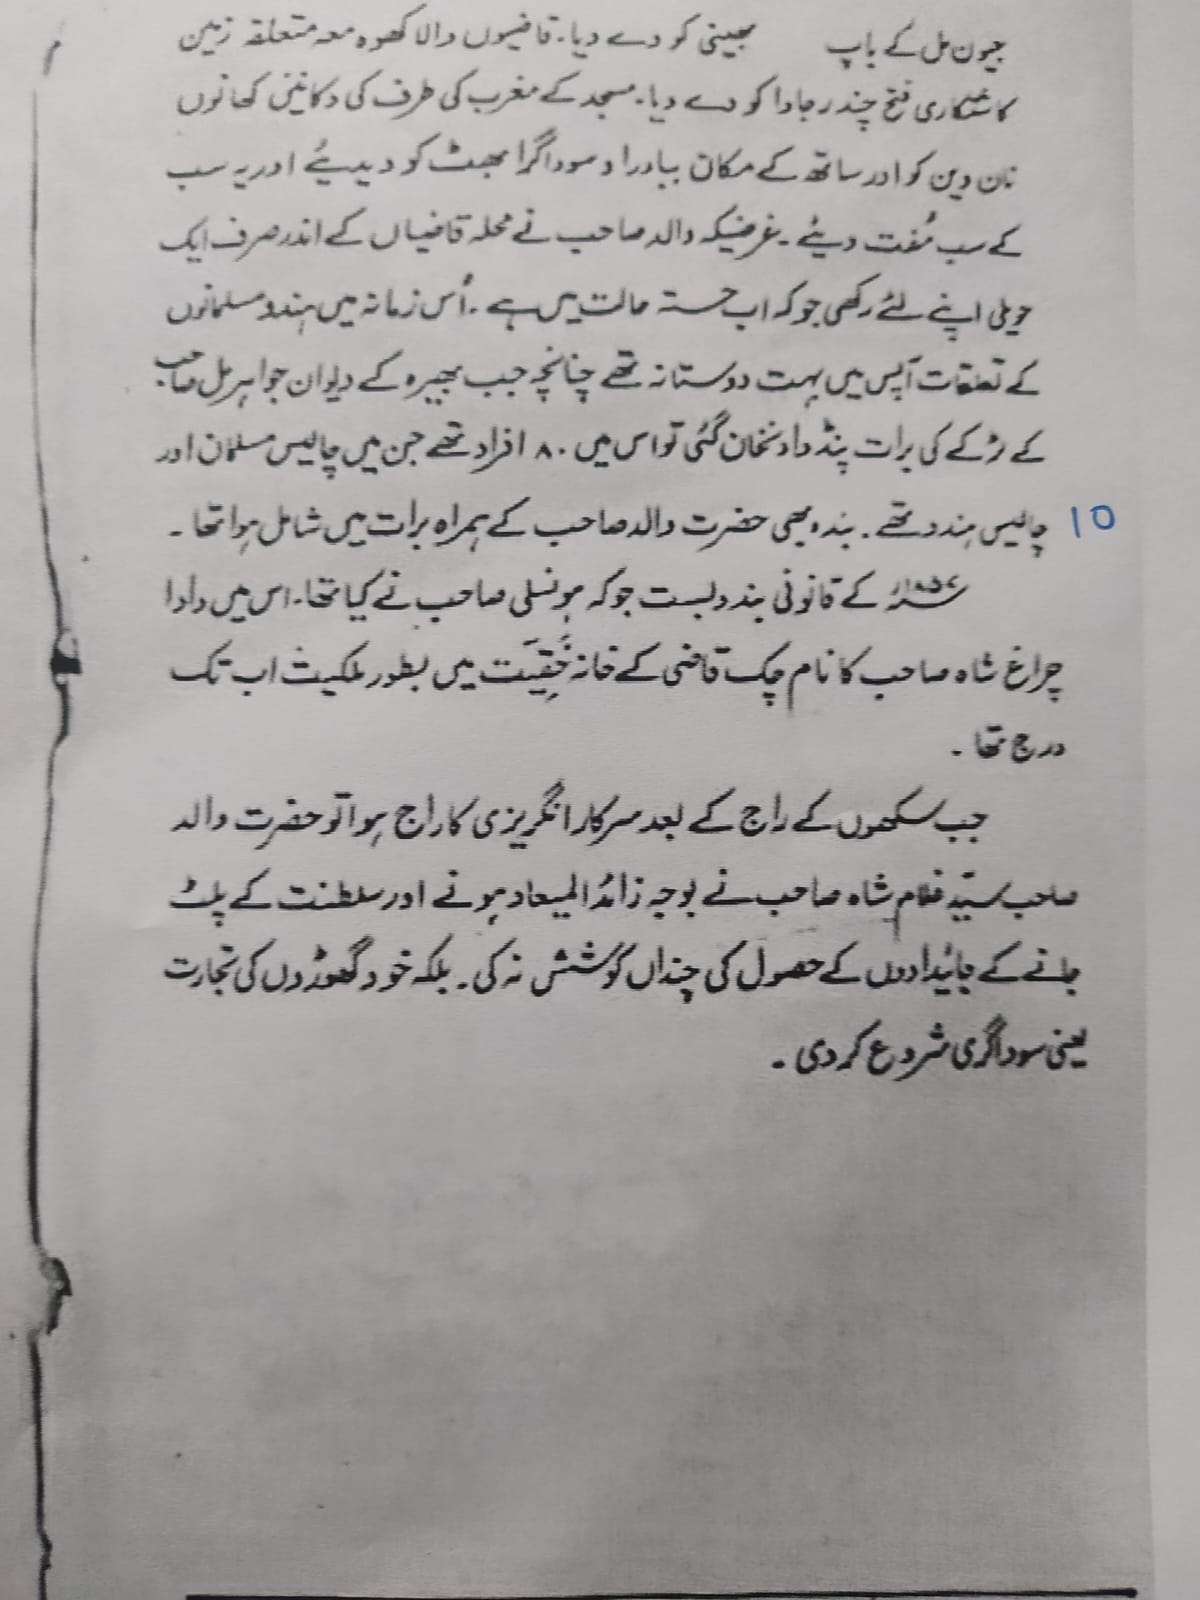 جیون مل کے باپ بھینی کو دے دیا۔ قاضیوں والا کھوہ معہ متعلقہ زمین
کاشتکاری فتح چند رجادا کو دے دیا۔ مسجد کے مغرب کی طرف کی دکانیں کھانوں
نان دین کو اور ساتھ کے مکان و سوداگرا بھٹ کو دیدیئے اور یہ سب
کے سب مُفت دیئے۔ غرضیکہ والد صاحب نے محلہ قاضیاں کے اندر صرف ایک
حویلی اپنے لئے رکھی جو کہ اب خستہ حالت میں ہے۔ اُس زمانہ میں ہندو مسلمانوں
کے تعلقات آپس میں بہت دوستانہ تھے چنانچہ جب بھیرہ کے دیوان جواہر مل صاحب
کے لڑکے کی برات پنڈ دادنخان گئی تو اس میں ۸۰ افراد تھے جن میں چالیس مسلمان اور
چالیس ہندو تھے۔ بندہ بھی حضرت والد صاحب کے ہمراہ برات میں شامل ہوا تھا۔
10
۱۸۵۷ء کے قانونی بندوبست جو کہ ہونسلی صاحب نے کیا تھا۔ اس میں دادا
چراغ شاہ صاحب کا نام چک قاضی کے خانہ حَقِیَت میں بطور ملکیت اب تک
درج تھا۔
جب سکھوں کے راج کے بعد سرکار انگریزی کا راج ہوا تو حضرت والد
صاحب سیّد غلام شاہ صاحب نے بوجہ زائد المیعاد ہونے اور سلطنت کے پلٹ
جانے کے جائیدادوں کے حصول کی چنداں کوشش نہ کی۔ بلکہ خود گھوڑوں کی تجارت
یعنی سوداگری شروع کر دی۔